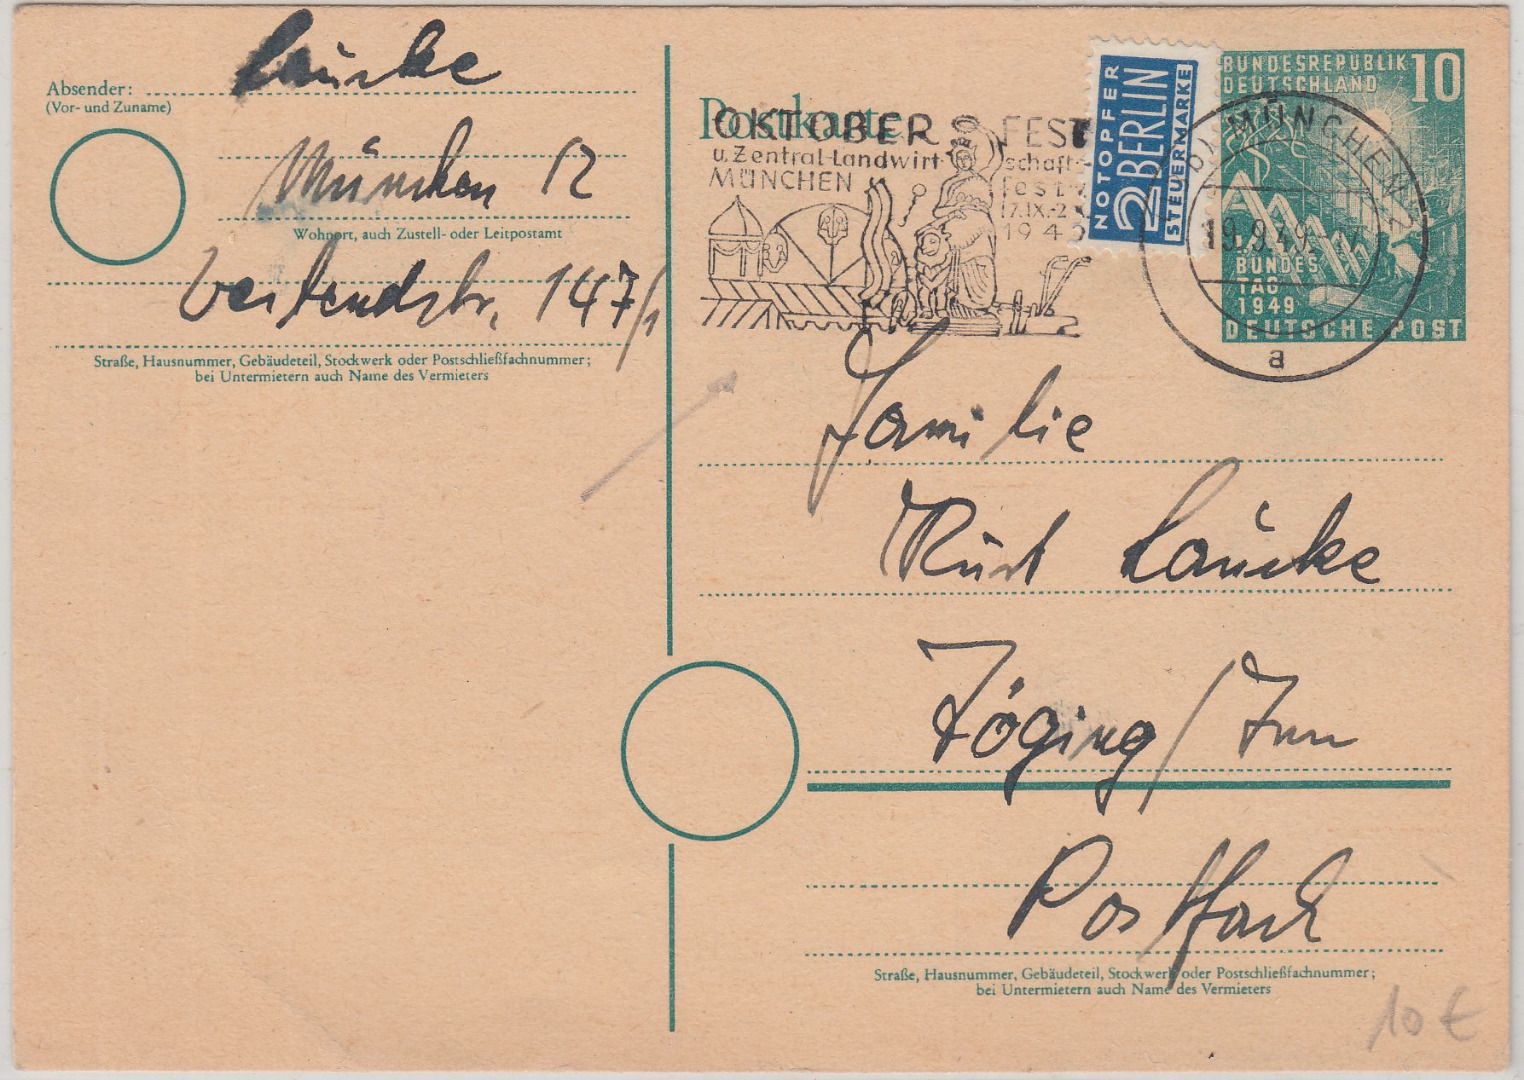 Laucke
Absender:
(Vor- und Zuname)
München 12
Wohnort, auch Zustell- oder Leitpostamt
Westendstr. 147/1
Straße, Hausnummer, Gebäudeteil, Stockwerk oder Postschließfachnummer;
bei Untermietern auch Name des Vermieters
Postkarte
OKTOBER FEST
u. Zentral-Landwirt schafts-
MÜNCHEN fest
17.IX.-2
194
NOTOPFER
2 BERLIN
STEUERMARKE
BUNDESREPUBLIK 10
DEUTSCHLAND
MÜNCHEN 2
19.9.49
BUNDES
TAG
1949
DEUTSCHE POST
a
Familie
Kurt Laucke
Töging/Inn
Postfach
Straße, Hausnummer, Gebäudeteil, Stockwerk oder Postschließfachnummer;
bei Untermietern auch Name des Vermieters
10 €